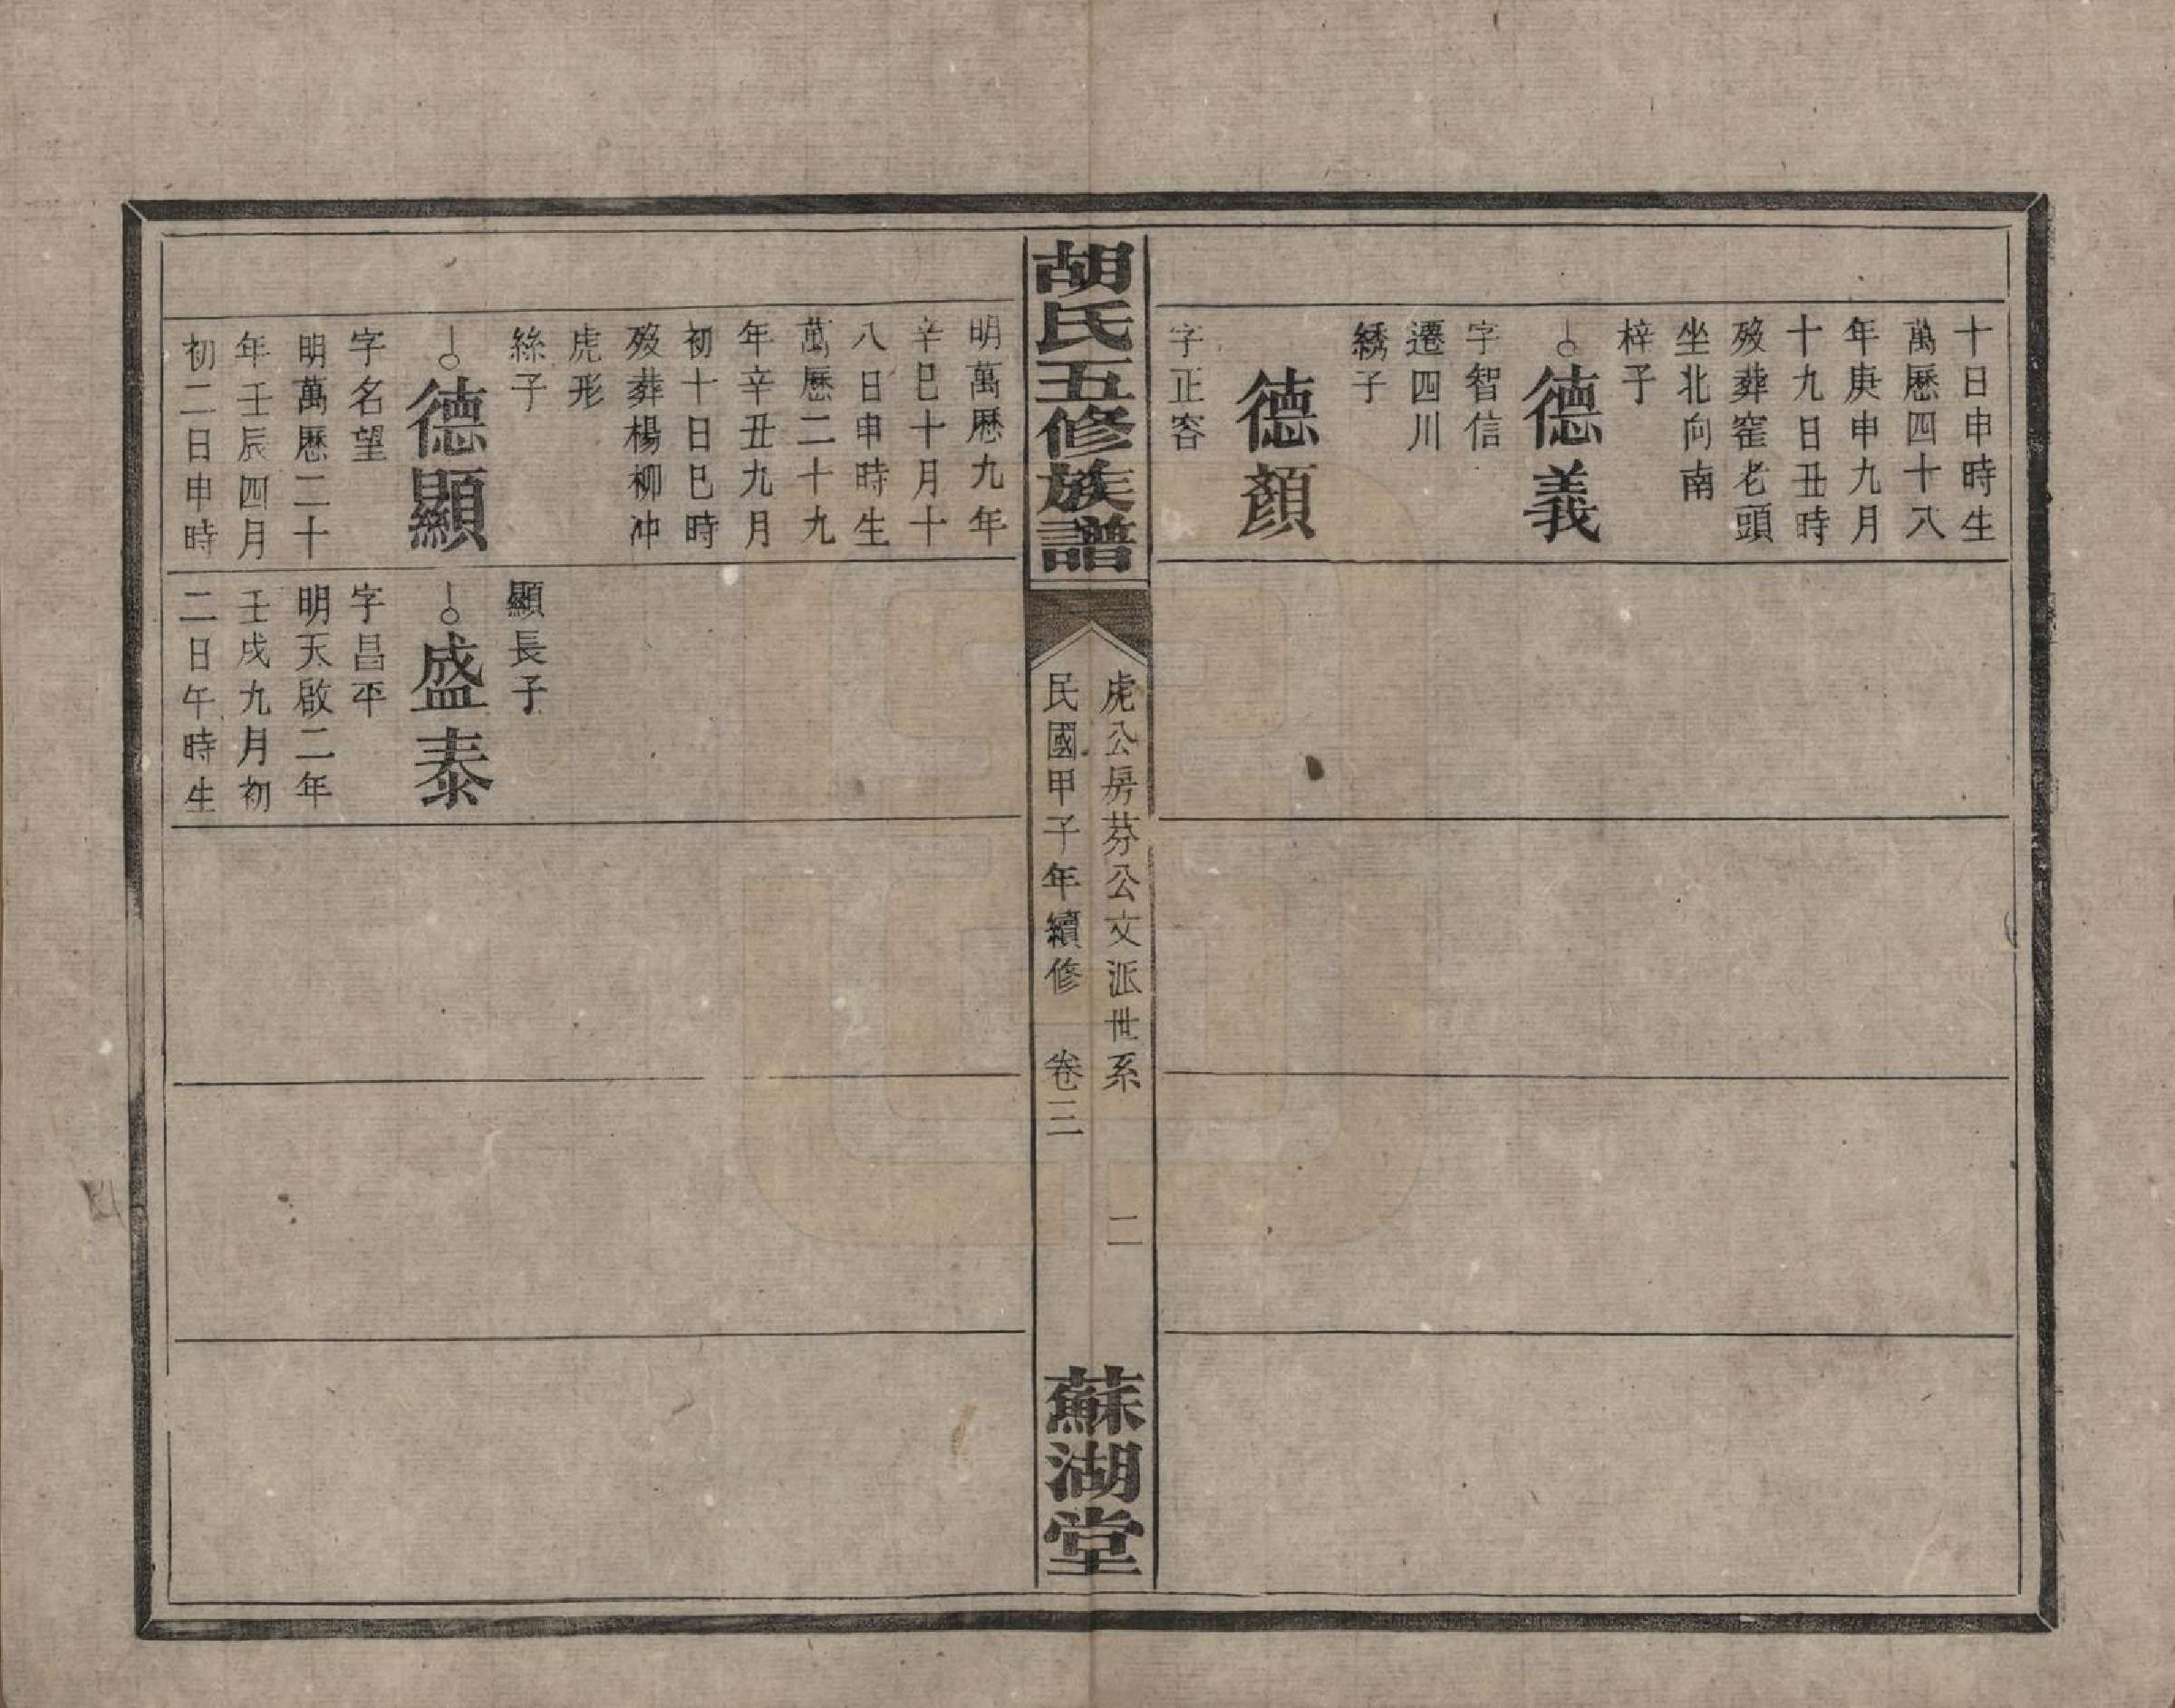 十日申時生
萬歷四十八
年庚申九月
十九日丑時
歿葬窑老頭
坐北向南
梓子
德義
字智信
遷四川
綉子
德顏
字正容
胡氏五修族譜
虎公房芬公文派世系
二
民國甲子年續修 卷三
蘇湖堂
明萬歷九年
辛巳十月十
八日申時生
萬歷二十九
年辛丑九月
初十日巳時
歿葬楊柳冲
虎形
絲子
德顯
字名望
明萬歷二十
年壬辰四月
初二日申時
顯長子
盛泰
字昌平
明天啟二年
壬戌九月初
二日午時生